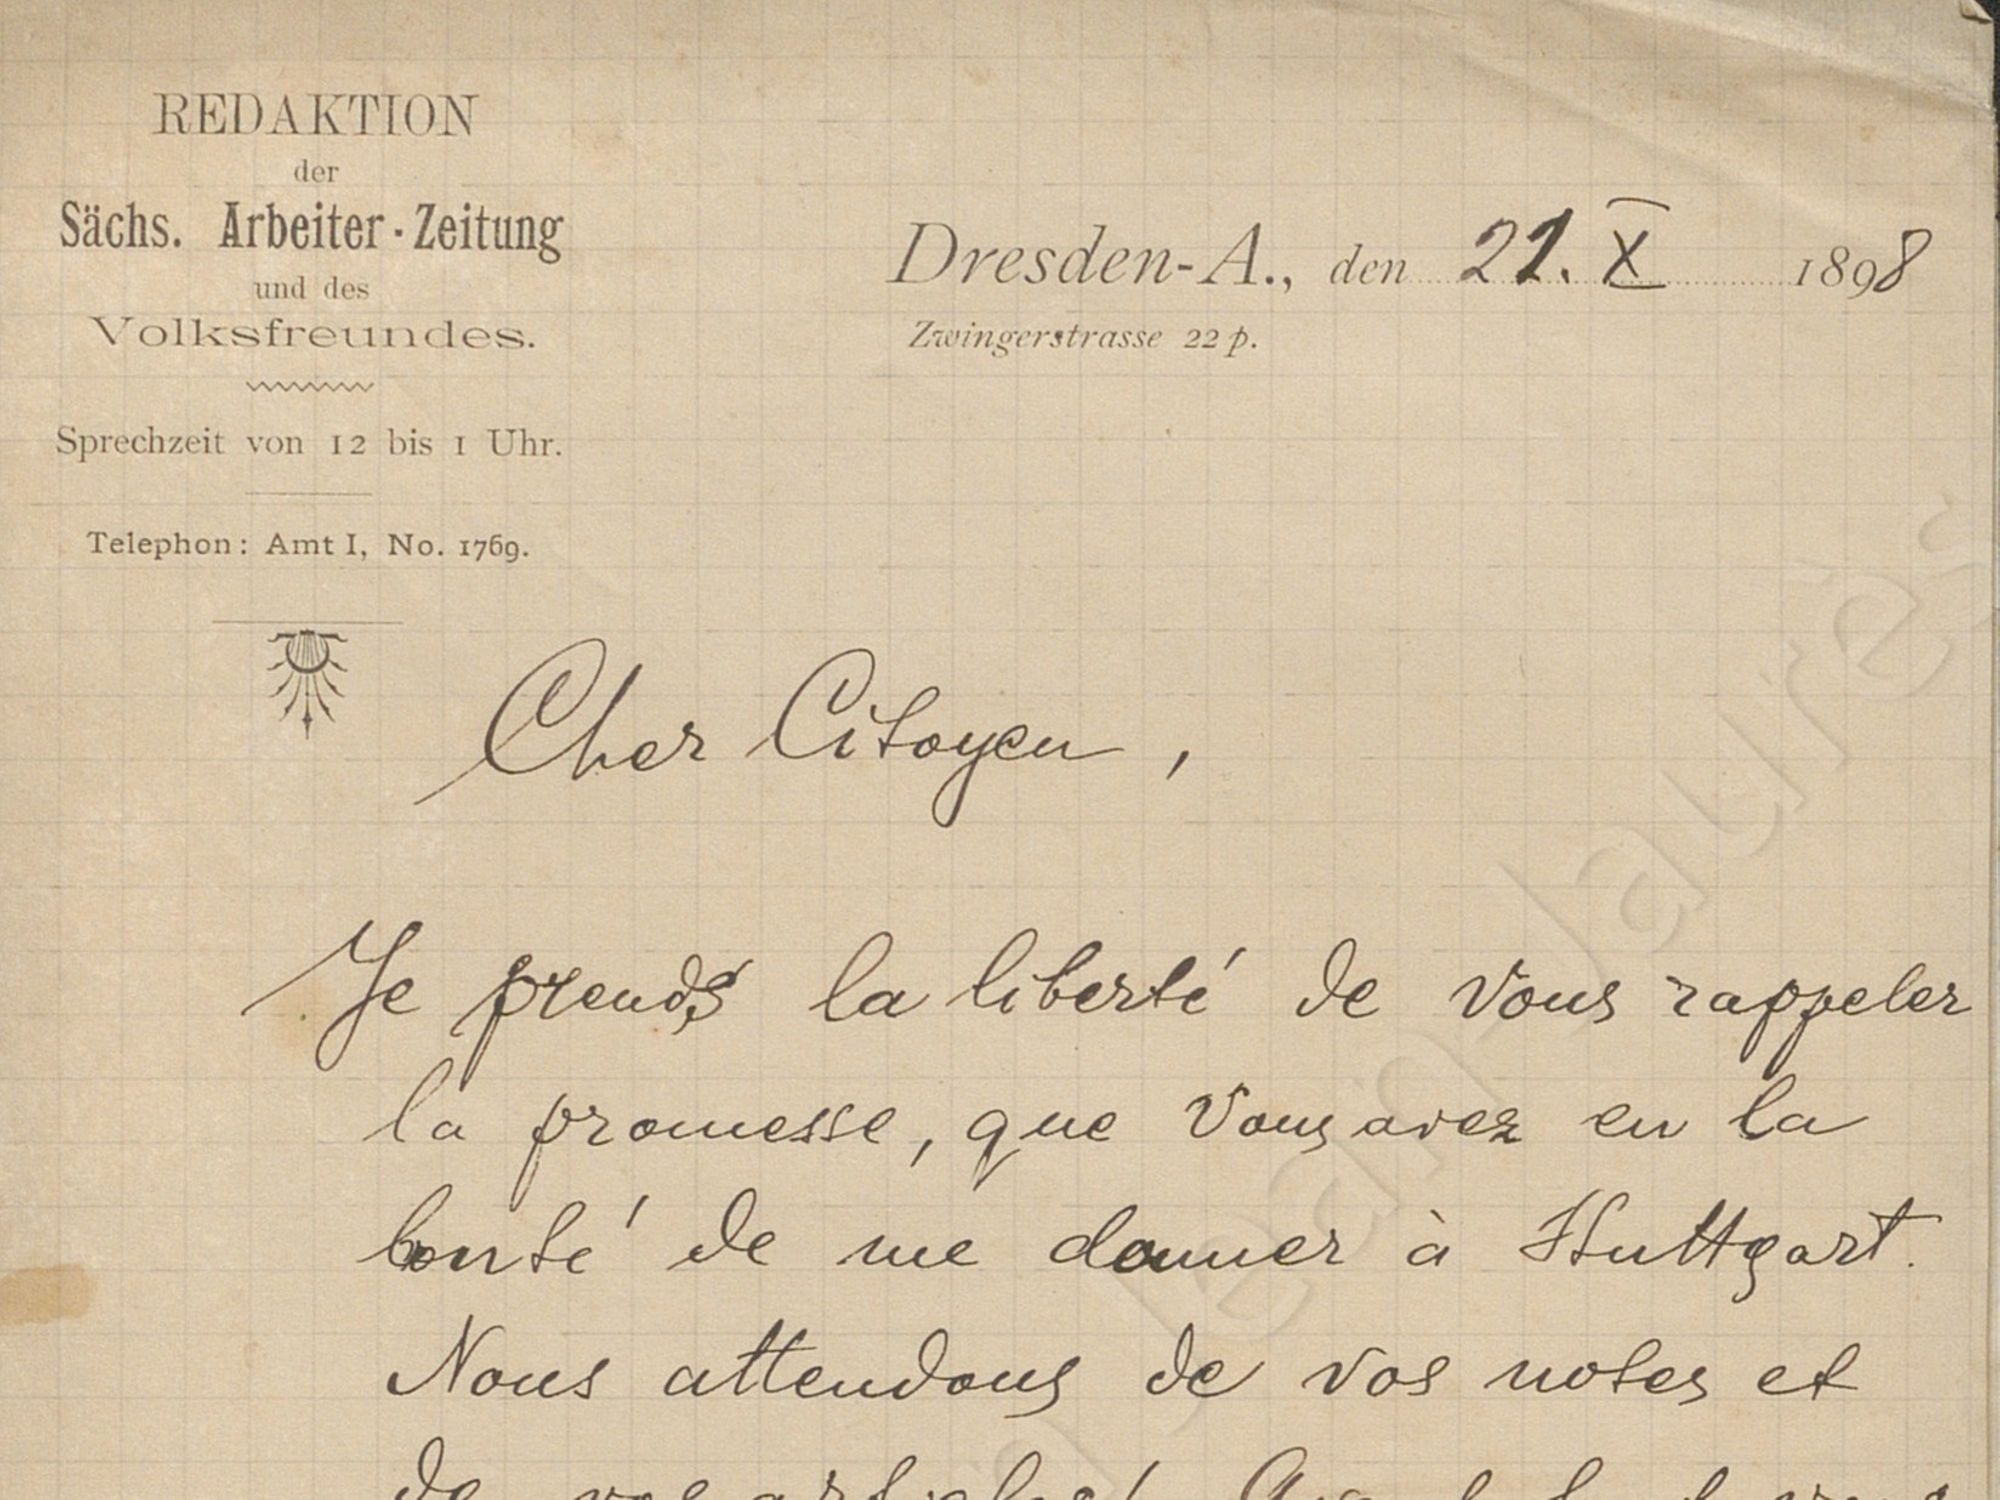 REDAKTION
der
Sächs. Arbeiter-Zeitung
und des
Volksfreundes.
Sprechzeit von 12 bis 1 Uhr.
Telephon: Amt I, No. 1769.
Dresden-A., den 21. X 1898
Zwingerstrasse 22 p.
Cher Citoyen,
Je prends la liberté de Vous rappeler
la promesse, que Vous avez eu la
bonté de me donner à Stuttgart.
Nous attendons de vos notes et
de vos articles!
Jean-Jaurès